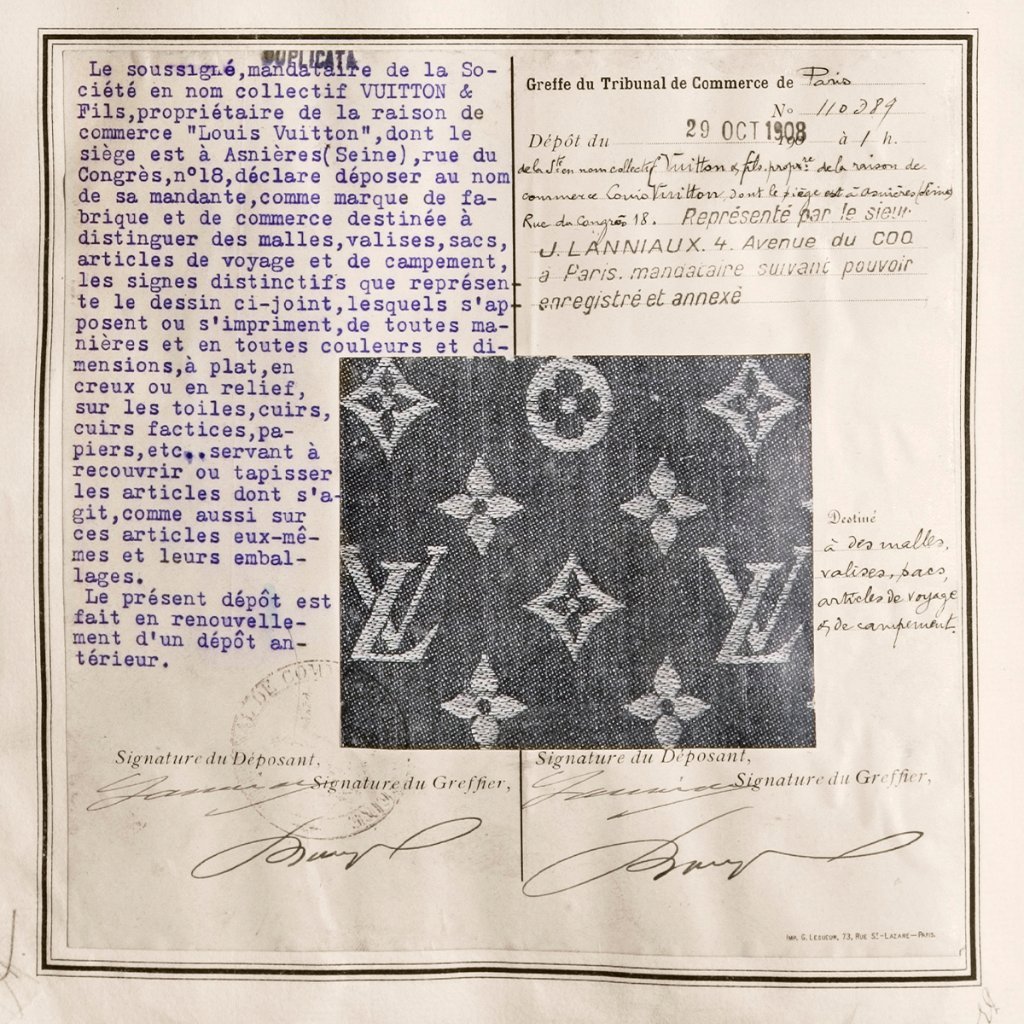 DUPLICATA
Le soussigné,mandataire de la So-
ciété en nom collectif VUITTON &
Fils,propriétaire de la raison de
commerce "Louis Vuitton",dont le
siège est à Asnières(Seine),rue du
Congrès,n°18,déclare déposer au nom
de sa mandante,comme marque de fa-
brique et de commerce destinée à
distinguer des malles,valises,sacs,
articles de voyage et de campement,
les signes distinctifs que représen-
te le dessin ci-joint,lesquels s'ap-
posent ou s'impriment,de toutes ma-
nières et en toutes couleurs et di-
mensions,à plat,en
creux ou en relief,
sur les toiles,cuirs,
cuirs factices,pa-
piers,etc..servant à
recouvrir ou tapisser
les articles dont s'a-
git,comme aussi sur
ces articles eux-mê-
mes et leurs embal-
lages.
Le présent dépôt est
fait en renouvelle-
ment d'un dépôt an-
térieur.
Signature du Déposant,
Signature du Greffier,
Greffe du Tribunal de Commerce de Paris
N° 110389
Dépôt du 29 OCT 1908 à 1 h.
de la Sté en nom collectif Vuitton & fils, propre de la raison de
commerce Louis Vuitton, dont le siège est à Asnières (Seine)
Rue du Congrès 18. Représenté par le sieur
J. LANNIAUX. 4. Avenue du COQ
à Paris. mandataire suivant pouvoir
enregistré et annexé
LV
LV
Destiné
à des malles,
valises, sacs,
articles de voyage
& de campement.
Signature du Déposant,
Signature du Greffier,
IMP. G. LEQUEUR, 73, RUE ST-LAZARE—PARIS.